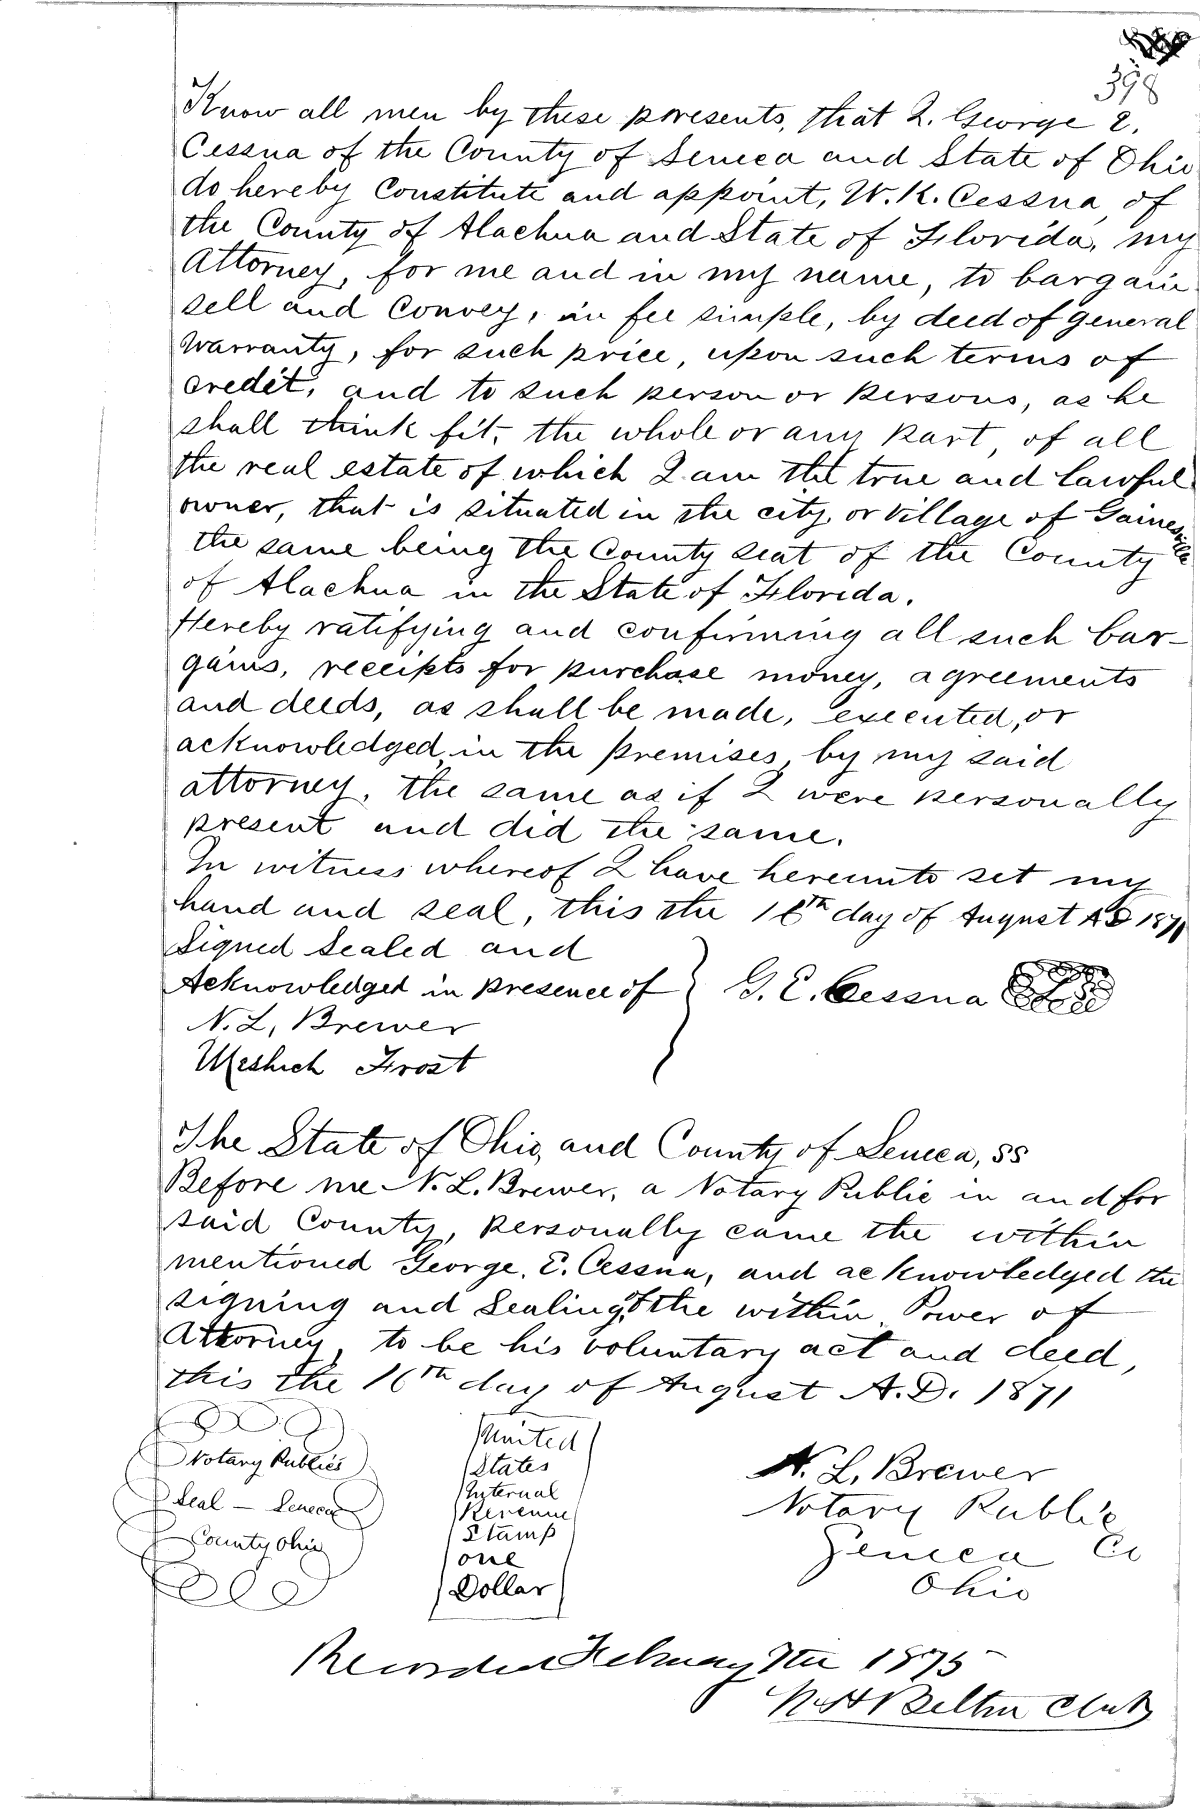 398
Know all men by these presents, that I. George E.
Cessna of the County of Seneca and State of Ohio
do hereby Constitute and appoint, W. K. Cessna, of
the County of Alachua and State of Florida, my
Attorney, for me and in my name, to bargain
sell and Convey, in fee simple, by deed of general
warranty, for such price, upon such terms of
credit, and to such person or persons, as he
shall think fit, the whole or any part, of all
the real estate of which I am the true and lawful
owner, that is situated in the city or Village of Gainesville
the same being the County seat of the County
of Alachua in the State of Florida.
Hereby ratifying and confirming all such bar-
gains, receipts for purchase money, agreements
and deeds, as shall be made, executed, or
acknowledged in the premises, by my said
attorney, the same as if I were personally
present and did the same.
In witness whereof I have hereunto set my
hand and seal, this the 16th day of August A D 1871
Signed Sealed and
Acknowledged in presence of } G. E. Cessna
N. L. Brewer
Meshich Frost
The State of Ohio, and County of Seneca, ss
Before me N. L. Brewer, a Notary Public in and for
said County, personally came the within
mentioned George. E. Cessna, and acknowledged the
signing and Sealing of the within Power of
Attorney, to be his voluntary act and deed,
this the 16th day of August A. D. 1871
Notary Publics
Seal - Seneca
County Ohio
United
States
Internal
Revenue
Stamp
one
Dollar
N. L. Brewer
Notary Public
Seneca Co
Ohio
Recorded February 9th 1875
Clerk